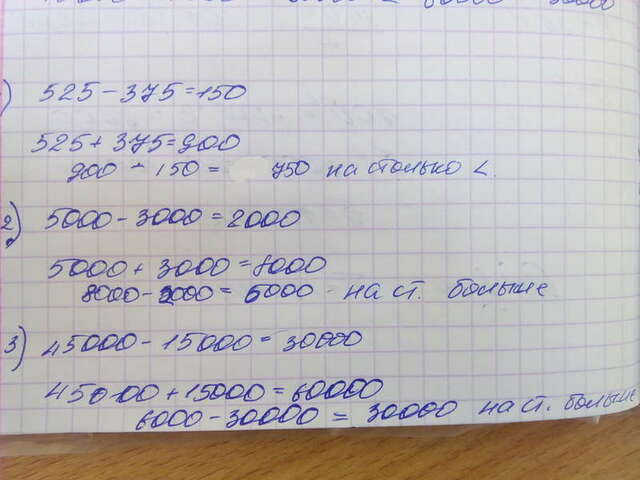 ) 525 - 375 = 150
525 + 375 = 900
900 - 150 = 750 на столько <.
2) 5000 - 3000 = 2000
5000 + 3000 = 8000
8000 - 2000 = 6000 - на ст. больше
3) 45000 - 15000 = 30000
45000 + 15000 = 60000
6000 - 30000 = 30000 на ст. больше